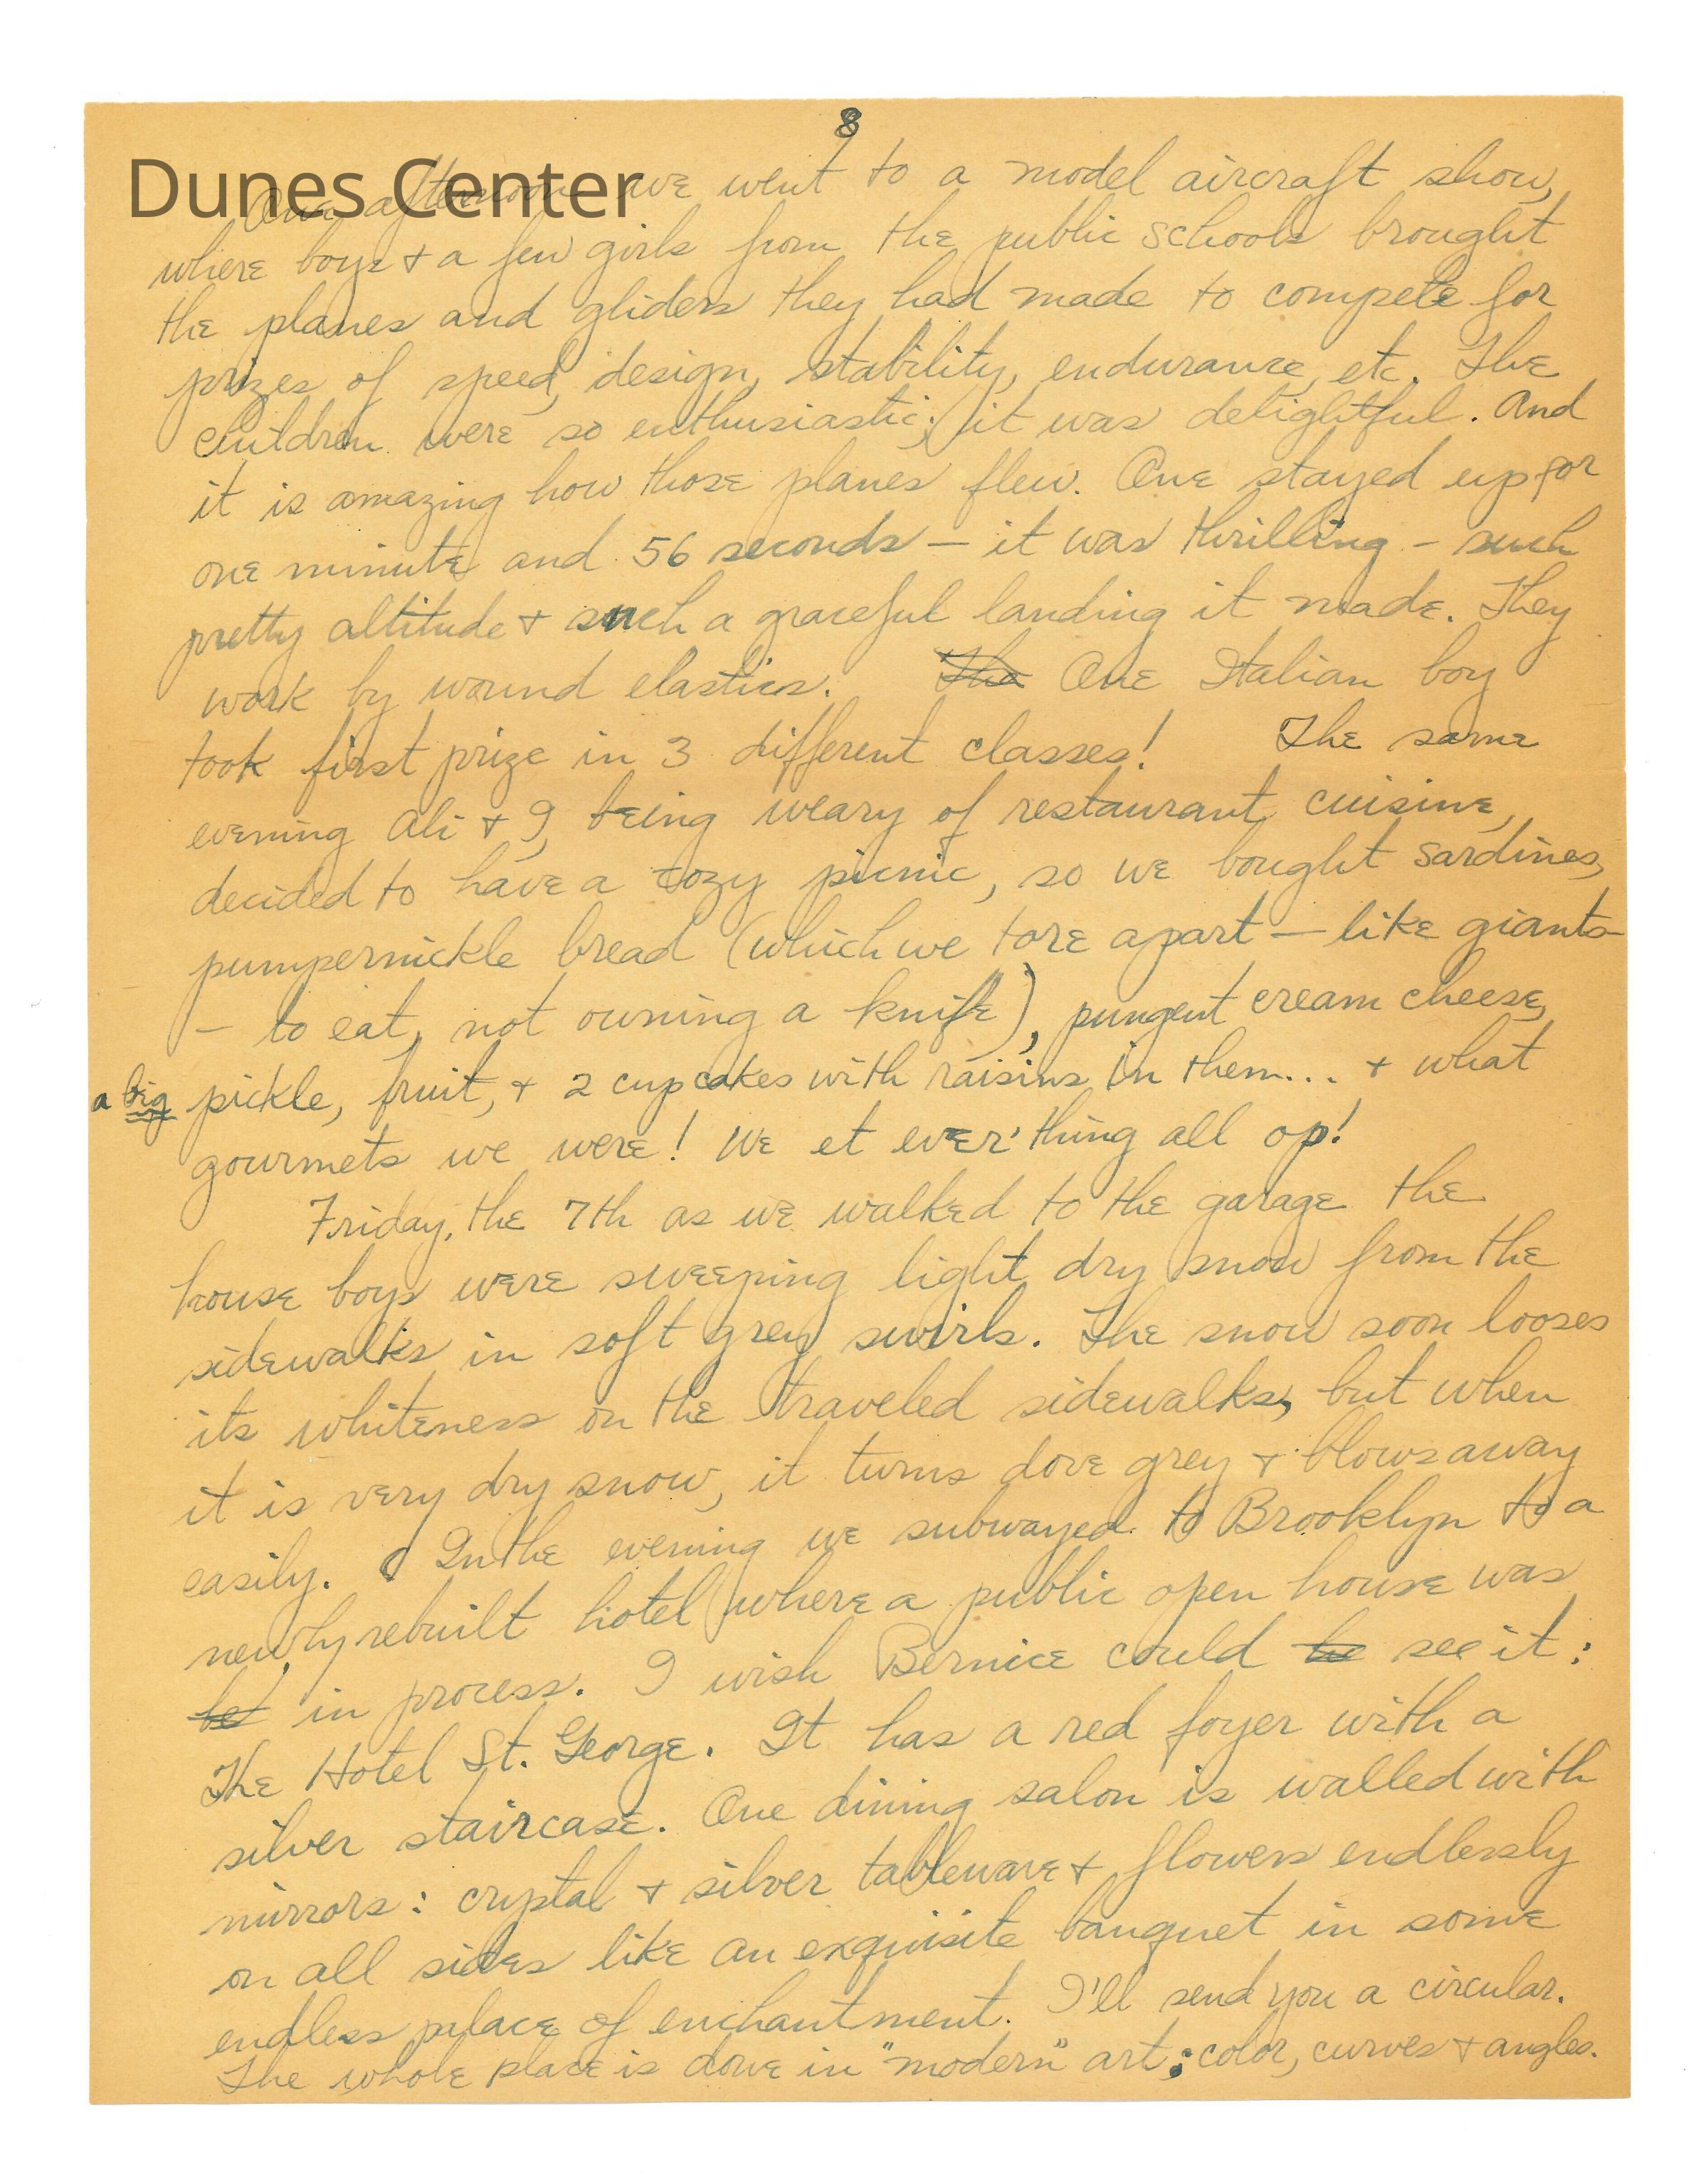 8
Dunes Center
One afternoon we went to a model aircraft show,
where boys + a few girls from the public schools brought
the planes and gliders they had made to compete for
prizes of speed, design, stability, endurance, etc. The
children were so enthusiastic; it was delightful. And
it is amazing how those planes flew. One stayed up for
one minute and 56 seconds — it was thrilling – such
pretty altitude + such a graceful landing it made. They
work by wound elastics. The One Italian boy
took first prize in 3 different classes! The same
evening Ali + I, being weary of restaurant cuisine,
decided to have a cozy picnic, so we bought sardines,
pumpernickle bread (which we tore apart — like giants
— to eat, not owning a knife), pungent cream cheese,
a big pickle, fruit, + 2 cupcakes with raisins in them... + what
gourmets we were! We et ever'thing all op!
Friday, the 7th as we walked to the garage the
house boys were sweeping light dry snow from the
sidewalks in soft grey swirls. The snow soon looses
its whiteness on the traveled sidewalks, but when
it is very dry snow, it turns dove grey + blows away
easily. In the evening we subwayed to Brooklyn to a
newly rebuilt hotel where a public open house was
be in process. I wish Bernice could be see it:
The Hotel St. George. It has a red foyer with a
silver staircase. One dining salon is walled with
mirrors: crystal + silver tableware + flowers endlessly
on all sides like an exquisite banquet in some
endless palace of enchantment. I'll send you a circular.
The whole place is done in "modern" art; color, curves + angles.